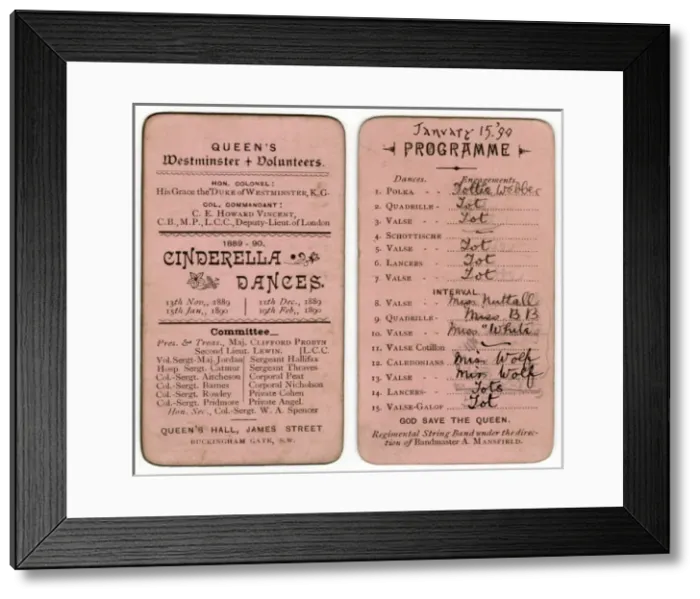 QUEEN'S
Westminster + Volunteers.
HON. COLONEL:
His Grace the DUKE OF WESTMINSTER, K.G.
COL. COMMANDANT:
C. E. HOWARD VINCENT,
C.B., M.P., L.C.C., Deputy-Lieut. of London
1889-90.
CINDERELLA
DANCES.
13th Nov., 1889 12th Dec., 1889
15th Jan., 1890 19th Feb., 1890
Committee
Pres. & Treas., Maj. CLIFFORD PROBYN
Second Lieut. LEWIN. [L.C.C.
Vol. Sergt-Maj. Jordan Sergeant Hallifax
Hosp Sergt. Catmur Sergeant Thraves
Col.-Sergt. Aitcheson Corporal Peat
Col.-Sergt. Barnes Corporal Nicholson
Col.-Sergt. Rowley Private Cohen
Col.-Sergt. Pridmore Private Angel.
Hon. Sec., Col-Sergt. W. A. Spencer
QUEEN'S HALL, JAMES STREET
BUCKINGHAM GATE, S.W.
January 15. '90
PROGRAMME
Dances. Engagements.
1. POLKA - - Dottie Webber
2. QUADRILLE - Tot
3. VALSE - - Tot
4. SCHOTTISCHE
5. VALSE - - Tot
6. LANCERS - Tot
7. VALSE - - Tot
INTERVAL
8. VALSE - - Miss Nuttall
9. QUADRILLE - Miss BB
10. VALSE - - Miss White
11. VALSE Cotillon
12. CALEDONIANS Miss Wolf
13. VALSE - - Miss Wolf
14. LANCERS - Tots
15. VALSE-GALOP Tot
GOD SAVE THE QUEEN.
Regimental String Band under the direc-
tion of Bandmaster A. MANSFIELD.